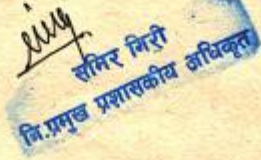 समिर गिरी
नि.प्रमुख प्रशासकीय अधिकृत